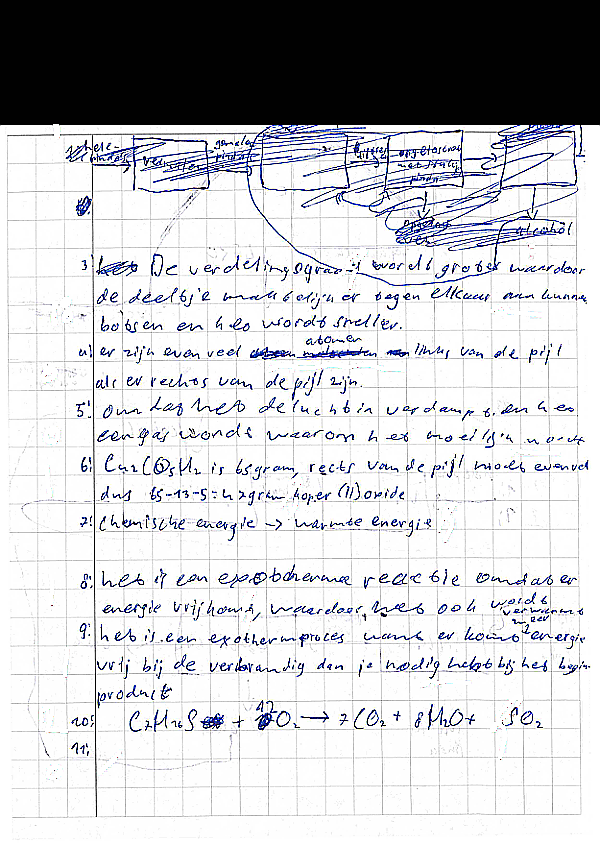 hele-
gemalen
alcohol
3! De verdelingsgraad wordt groter waardoor
de deeltje makkelijker tegen elkaar aan kunnen
botsen en het wordt sneller.
4! er zijn even veel atomen links van de pijl
als er rechts van de pijl zijn.
5! Omdat het de lucht in verdampt en het
een gas wordt waarom het moeilijk
6! is 65 gram, rects van de pijl moet evenveel
dus 65-13-5=47 gram koper (II) oxide
7! Chemische energie -> warmte energie
8! het is een exotherme reactie omdat er
energie vrijkomt, waardoor het ook wordt
verwarmt
9! het is een exotherm proces want er komt meer energie
vrij bij de verbrandig dan je nodig hebt bij het begin
product
10! C7H16S + 12O2 → 7CO2 + 8H2O + SO2
11!